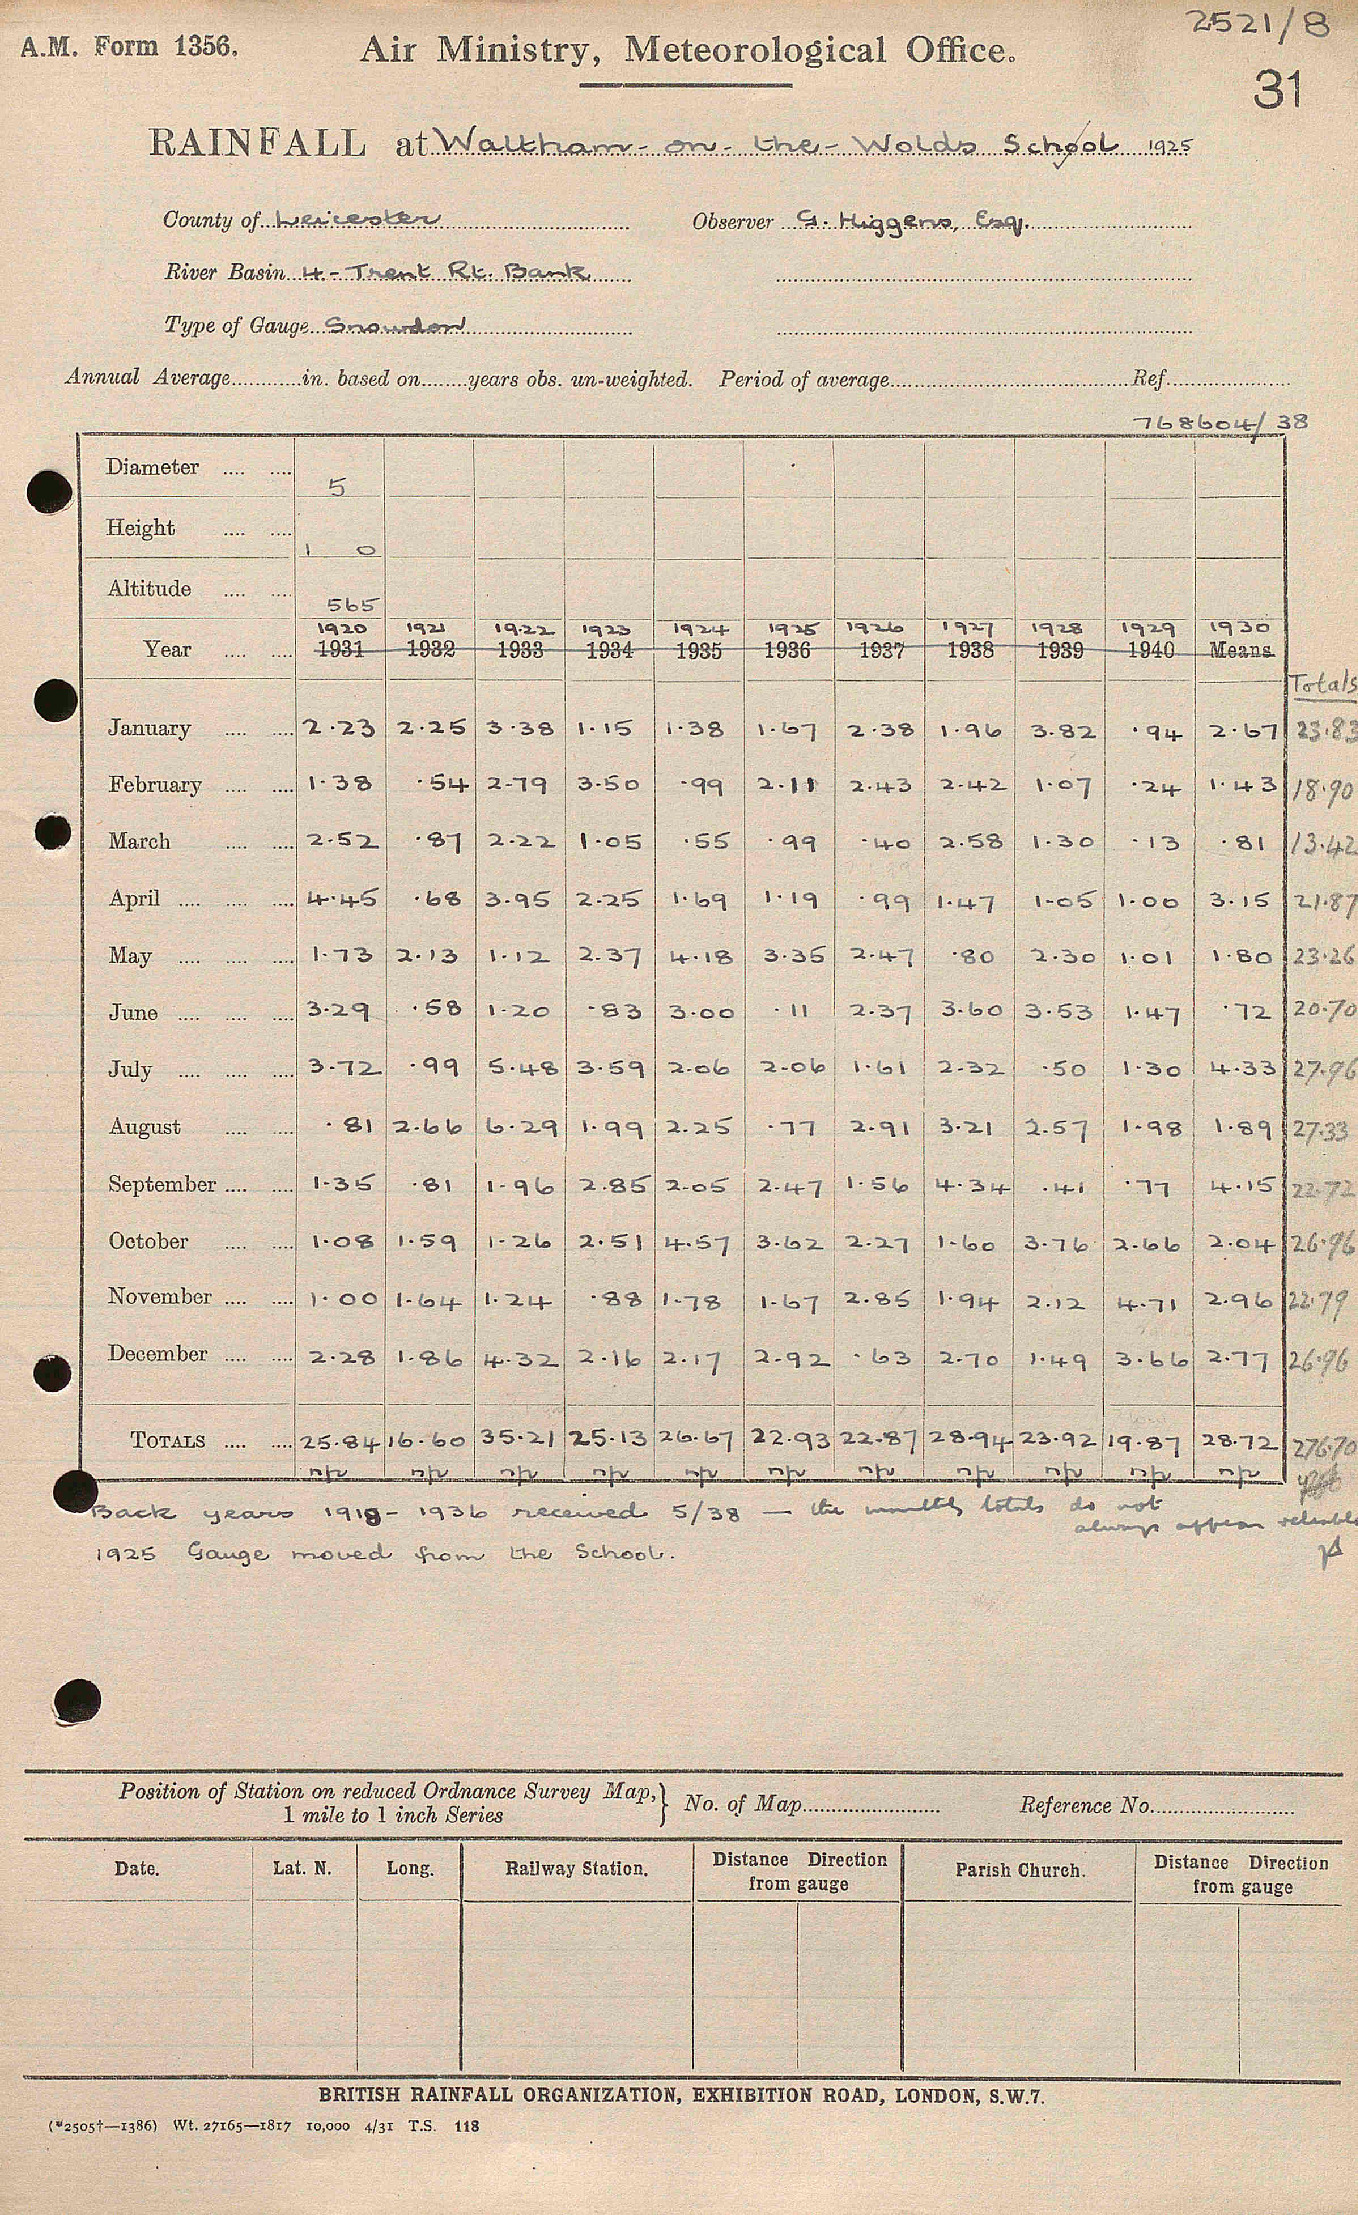 2521/8
A.M. Form 1356. Air Ministry, Meteorological Office.
31
RAINFALL at Waltham-on-the-Wolds School 1925
County of Leicester Observer G. Higgens, Esq.
River Basin 4-Trent Rt. Bank
Type of Gauge Snowdon
Annual Average in. based on years obs. un-weighted. Period of average Ref.
768604/38
Diameter 5
Height 1 0
Altitude 565
1920 1921 1922 1923 1924 1925 1926 1927 1928 1929 1930
Year 1931 1932 1933 1934 1935 1936 1937 1938 1939 1940 Means
Totals
January 2.23 2.25 3.38 1.15 1.38 1.67 2.38 1.96 3.82 .94 2.67 23.83
February 1.38 .54 2.79 3.50 .99 2.11 2.43 2.42 1.07 .24 1.43 18.90
March 2.52 .87 2.22 1.05 .55 .99 .40 2.58 1.30 .13 .81 13.42
April 4.45 .68 3.95 2.25 1.69 1.19 .99 1.47 1.05 1.00 3.15 21.87
May 1.73 2.13 1.12 2.37 4.18 3.35 2.47 .80 2.30 1.01 1.80 23.26
June 3.29 .58 1.20 .83 3.00 .11 2.37 3.60 3.53 1.47 .72 20.70
July 3.72 .99 5.48 3.59 2.06 2.06 1.61 2.32 .50 1.30 4.33 27.96
August .81 2.66 6.29 1.99 2.25 .77 2.91 3.21 2.57 1.98 1.89 27.33
September 1.35 .81 1.96 2.85 2.05 2.47 1.56 4.34 .41 .77 4.15 22.72
October 1.08 1.59 1.26 2.51 4.57 3.62 2.27 1.60 3.76 2.66 2.04 26.96
November 1.00 1.64 1.24 .88 1.78 1.67 2.85 1.94 2.12 4.71 2.96 22.79
December 2.28 1.86 4.32 2.16 2.17 2.92 .63 2.70 1.49 3.66 2.77 26.96
TOTALS 25.84 16.60 35.21 25.13 26.67 22.93 22.87 28.94 23.92 19.87 28.72 276.70
n/p n/p n/p n/p n/p n/p n/p n/p n/p n/p n/p
Back years 1918-1936 received 5/38 — the monthly totals do not
always appear reliable
1925 Gauge moved from the School.
Position of Station on reduced Ordnance Survey Map,
1 mile to 1 inch Series
No. of Map Reference No.
Date. Lat. N. Long. Railway Station. Distance Direction from gauge Parish Church. Distance Direction from gauge
BRITISH RAINFALL ORGANIZATION, EXHIBITION ROAD, LONDON, S.W.7.
(*2505†—1386) Wt. 27165—1817 10,000 4/31 T.S. 118